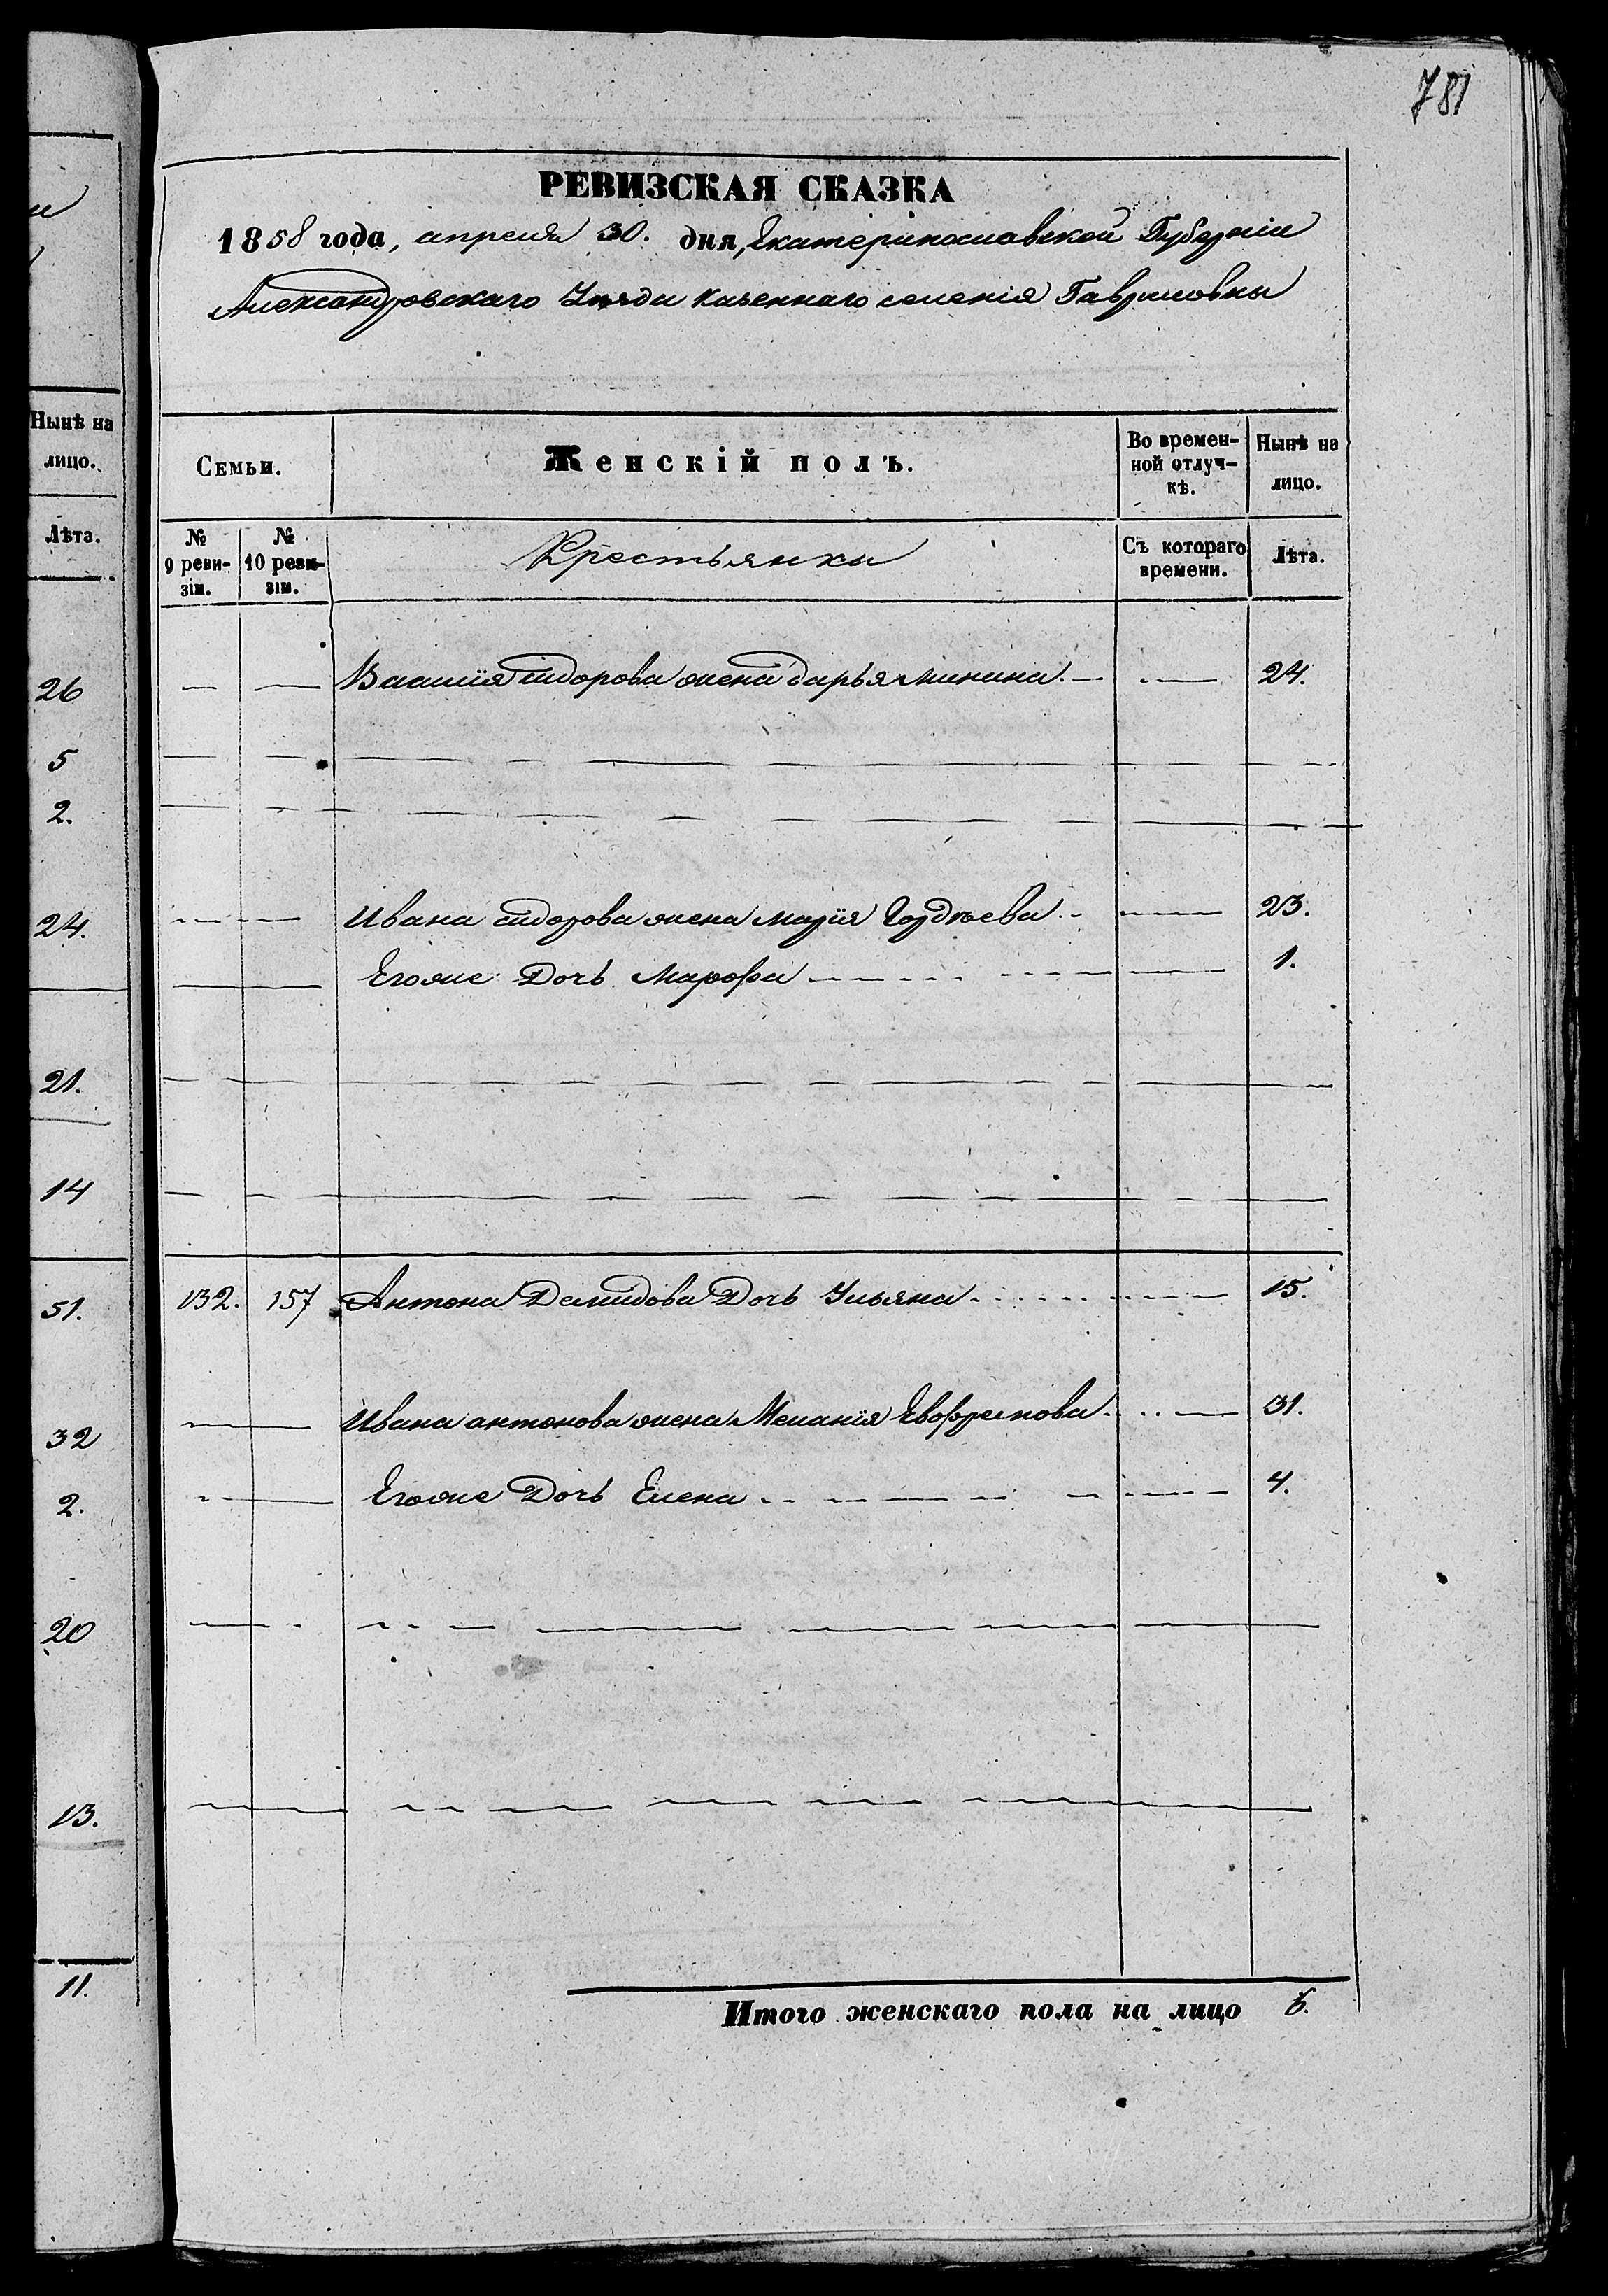 781
РЕВИЗСКАЯ СКАЗКА
1858 года, апреля 30. дня, Екатеринославской Губерніи
Александровскаго Уезда казеннаго селенія Гавриловки
Семьи.
Женскій полъ.
Во времен-
ной отлуч-
кѣ.
Нынѣ на
лицо.
№
9 реви-
зіи.
№
10 реви-
зіи.
Крестьянки
Съ котораго
времени.
Лѣта.
Василія сидорова жена дарья минина. 24.
Ивана сидорова жена марія Гордѣева 23.
Егоже Дочь Марфа 1.
132. 157 Антона Демидова Дочь Ульяна 15.
Ивана антонова жена Меланія Евфремова 31.
Егоже Дочь Елена 4.
Итого женскаго пола на лицо 6.
Нынѣ на
лицо.
Лѣта.
26
5
2.
24.
21.
14
51.
32
2.
20
13.
11.